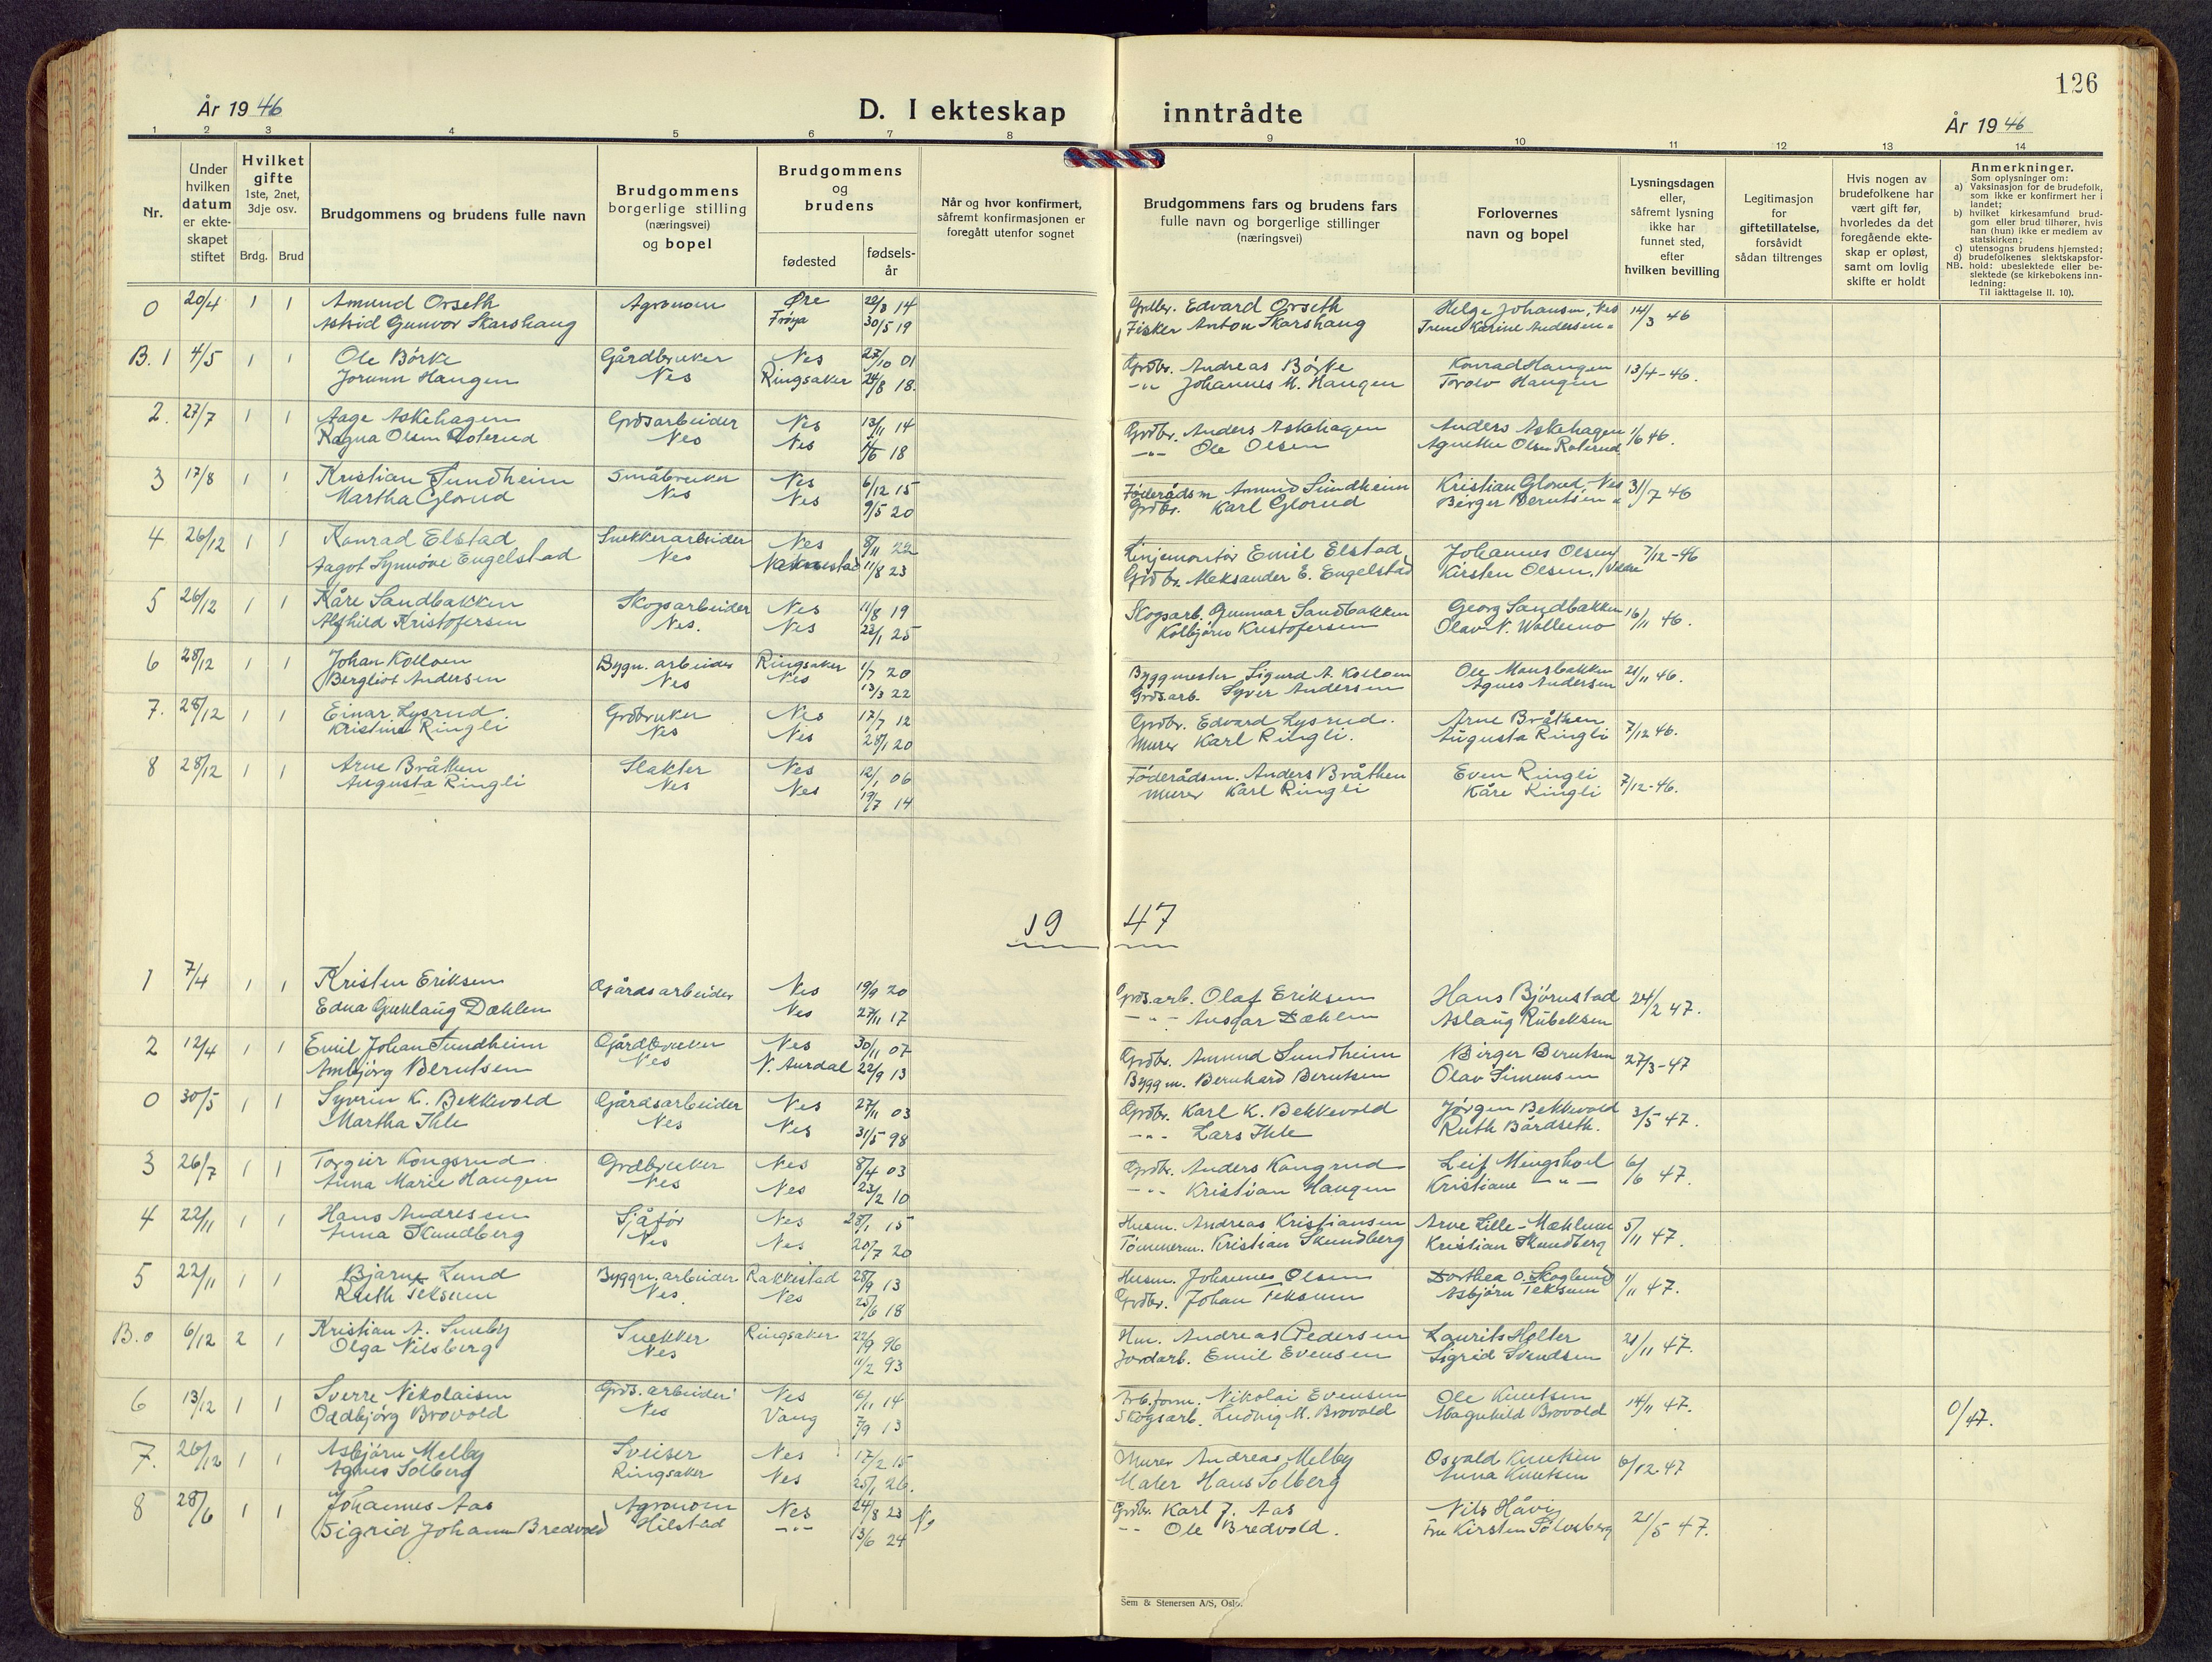 126
År 1946
D. I ekteskap inntrådte
År 1946
1 2 3 4 5 6 7 8 9 10 11 12 13 14
Nr.
Under hvilken datum er ekteskapet stiftet
Hvilket gifte 1ste, 2net, 3dje osv.
Brdg. Brud
Brudgommens og brudens fulle navn
Brudgommens borgerlige stilling (næringsvei) og bopel
Brudgommens og brudens
fødested
fødselsår
Når og hvor konfirmert, såfremt konfirmasjonen er foregått utenfor sognet
Brudgommens fars og brudens fars fulle navn og borgerlige stillinger (næringsvei)
Forlovernes navn og bopel
Lysningsdagen eller, såfremt lysning ikke har funnet sted, efter hvilken bevilling
Legitimasjon for giftetillatelse, forsåvidt sådan tiltrenges
Hvis nogen av brudefolkene har vært gift før, hvorledes da det foregående ekteskap er opløst, samt om lovlig skifte er holdt
Anmerkninger.
Som oplysninger om:
a) Vaksinasjon for de brudefolk, som ikke er konfirmert her i landet;
b) hvilket kirkesamfund brudgom eller brud tilhører, hvis han (hun) ikke er medlem av statskirken;
c) utensogns brudens hjemsted;
d) brudefolkenes slektskapsforhold: ubeslektede eller beslektede (se kirkebokens innledning:
NB. Til iakttagelse II. 10).
0 20/4 1 1 Amund Orseth Agronom Øre 22/8 14 Edvard Orseth Helge Johansen, Nes 14/3 46
Astrid Gunvor Skarshaug Frøya 30/5 19 Fisker Anton Skarshaug Irene Karine Andersen "
B. 1 4/5 1 1 Ole Børke Gårdbruker Nes 27/10 01 Grdbr. Andreas Børke Konrad Haugen 13/4-46.
Jorunn Haugen Nes Ringsaker 24/8 18. -"- Johannes M. Haugen Torolv Haugen
2. 27/7 1 1 Aage Askehagen Grdsarbeider Nes 13/11 14 Grdbr. Anders Askehagen Anders Askehagen 1/6 46.
Ragna Olsen Roterud Nes Nes 18 -"- Ole Olsen Agnethe Olsen Roterud
3 17/8 1 1 Kristian Sundheim Småbruker Nes 6/12 15 Føderådsm Amund Sundheim Kristian Glorud, Nes 31/7 46
Martha Glorud Nes Nes 9/5 20 Grdbr. Karl Glorud Birger Berntsen "
4 26/12 1 1 Konrad Elstad Snekkerarbeider Nes 8/11 22 Linjemontør Emil Elstad Johannes Olsen 7/12-46
Aagot Synnøve Engelstad Nes 11/8 23 Grdbr. Aleksander E. Engelstad Kirsten Olsen,
5 26/12 1 1 Kåre Sandbakken Skogsarbeider Nes 11/8 19 Skogsarb. Gunnar Sandbakken Georg Sandbakken 16/11 46.
Alfhild Kristofersen Nes. Nes 23/1 25 Kolbjørn Kristofersen Olav N. Wollemo
6 28/12 1 1 Johan Kolloen Bygn. arbeider Ringsaker 1/7 20 Byggmester Sigurd A. Kolloen Ole Mausbakken 21/11 46.
Bergliot Andersen Nes Nes 13/3 22 Grds.arb. Syver Andersen Agnes Andersen
7. 28/12 1 1 Einar Lysrud. Grdbruker Nes 17/7 12 Grdbr. Edvard Lysrud. Arne Bråthen 7/12 46.
Kristine Ringli Nes Nes 28/1 20 Murer Karl Ringli. Augusta Ringli
8 28/12 1 1 Arne Bråthen Slakter Nes 12/1 06 Føderådsm. Anders Bråthen Even Ringli 7/12-46.
Augusta Ringli Nes Nes 19/7 14 Murer Karl Ringli Kåre Ringli
19 47
1 7/4 1 1 Kristen Eriksen Gårdsarbeider Nes 19/9 20 Grds.arb. Olaf Eriksen Hans Bjørnstad 24/2 47.
Edna Gunlaug Dæhlen Nes 27/11 17 -"- Ansgar Dæhlen Aslaug Rubeksen
2 12/4 1 1 Emil Johan Sundheim Gårdbruker Nes 30/11 07 Grdbr. Amund Sundheim Birger Berntsen 27/3-47
Ambjørg Berntsen Nes N. Aurdal 22/9 13 Byggm. Bernhard Berntsen Olav Simensen
0 30/5 1 1 Syverin K. Bekkevold Gårdsarbeider Nes 27/11 03 Grdbr. Karl K. Bekkevold Jørgen Bekkevold 3/5 47.
Martha Ihle Nes Nes 31/5 98 -"- Lars Ihle Ruth Bårdseth.
3 26/7 1 1 Torgeir Kongsrud Grdbruker Nes 8/4 03 Grdbr. Anders Kongrud Leif Mengshoel 6/6 47.
Anna Marie Haugen Nes Nes 23/2 10 -"- Kristian Haugen Kristiane -"-
4 22/11 1 1 Hans Andresen Sjåfør Nes 28/1 15 Husm. Andreas Kristiansen Arve Lille-Mæhlum 5/11 47.
Anna Skundberg Nes Nes 20/7 20 Tømmerm. Kristian Skundberg Kristian Skundberg
5 22/11 1 1 Bjarne Lund Byggn. arbeider Rakkestad 28/9 13 Husm. Johannes Olsen Dorthea O. Skoglund 1/11 47.
Ruth Teksum Nes. Nes 25/6 18 Grdbr. Johan Teksum Asbjørn Teksum
B. 0 6/12 2 1 Kristian A. Smeby Snekker Ringsaker 22/9 96 Hm. Andreas Pedersen Laurits Holter 21/11 47.
Olga Nilsberg Nes 11/2 93 Jordarb. Emil Evensen Sigrid Svendsen
6 13/12 1 1 Sverre Nikolaisen Grds. arbeider Nes 16/11 14 Arb.form. Nikolai Evensen Ole Knutsen 14/11 47. 0/47.
Oddbjørg Brovold Nes Vang 7/9 13 Skogsarb. Ludvig M. Brovold Magnhild Brovold
7. 26/12 1 1 Asbjørn Melby Sveiser Nes 17/2 15 Murer Andreas Melby Osvald Knutsen 6/12 47
Agnes Solberg Ringsaker Nes 25/1 26. Maler Hans Solberg Anna Knutsen
8 28/6 1 1 Johannes Aas Agronom Nes 24/8 23 Grdbr. Karl J. Aas Nils Håvi 21/5 47.
Sigrid Johanne Bredvold Hilstad -"- 13/6 24 -"- Ole Bredvold. Fru Kirsten Sølvsberg
Sem & Stenersen A/S, Oslo.